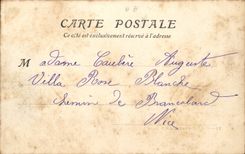 CARTE POSTALE
Ce côté est exclusivement réservé à l'adresse
M adame Caulère Auguste
Villa Rose Blanche
chemin de Brancolard
Nice